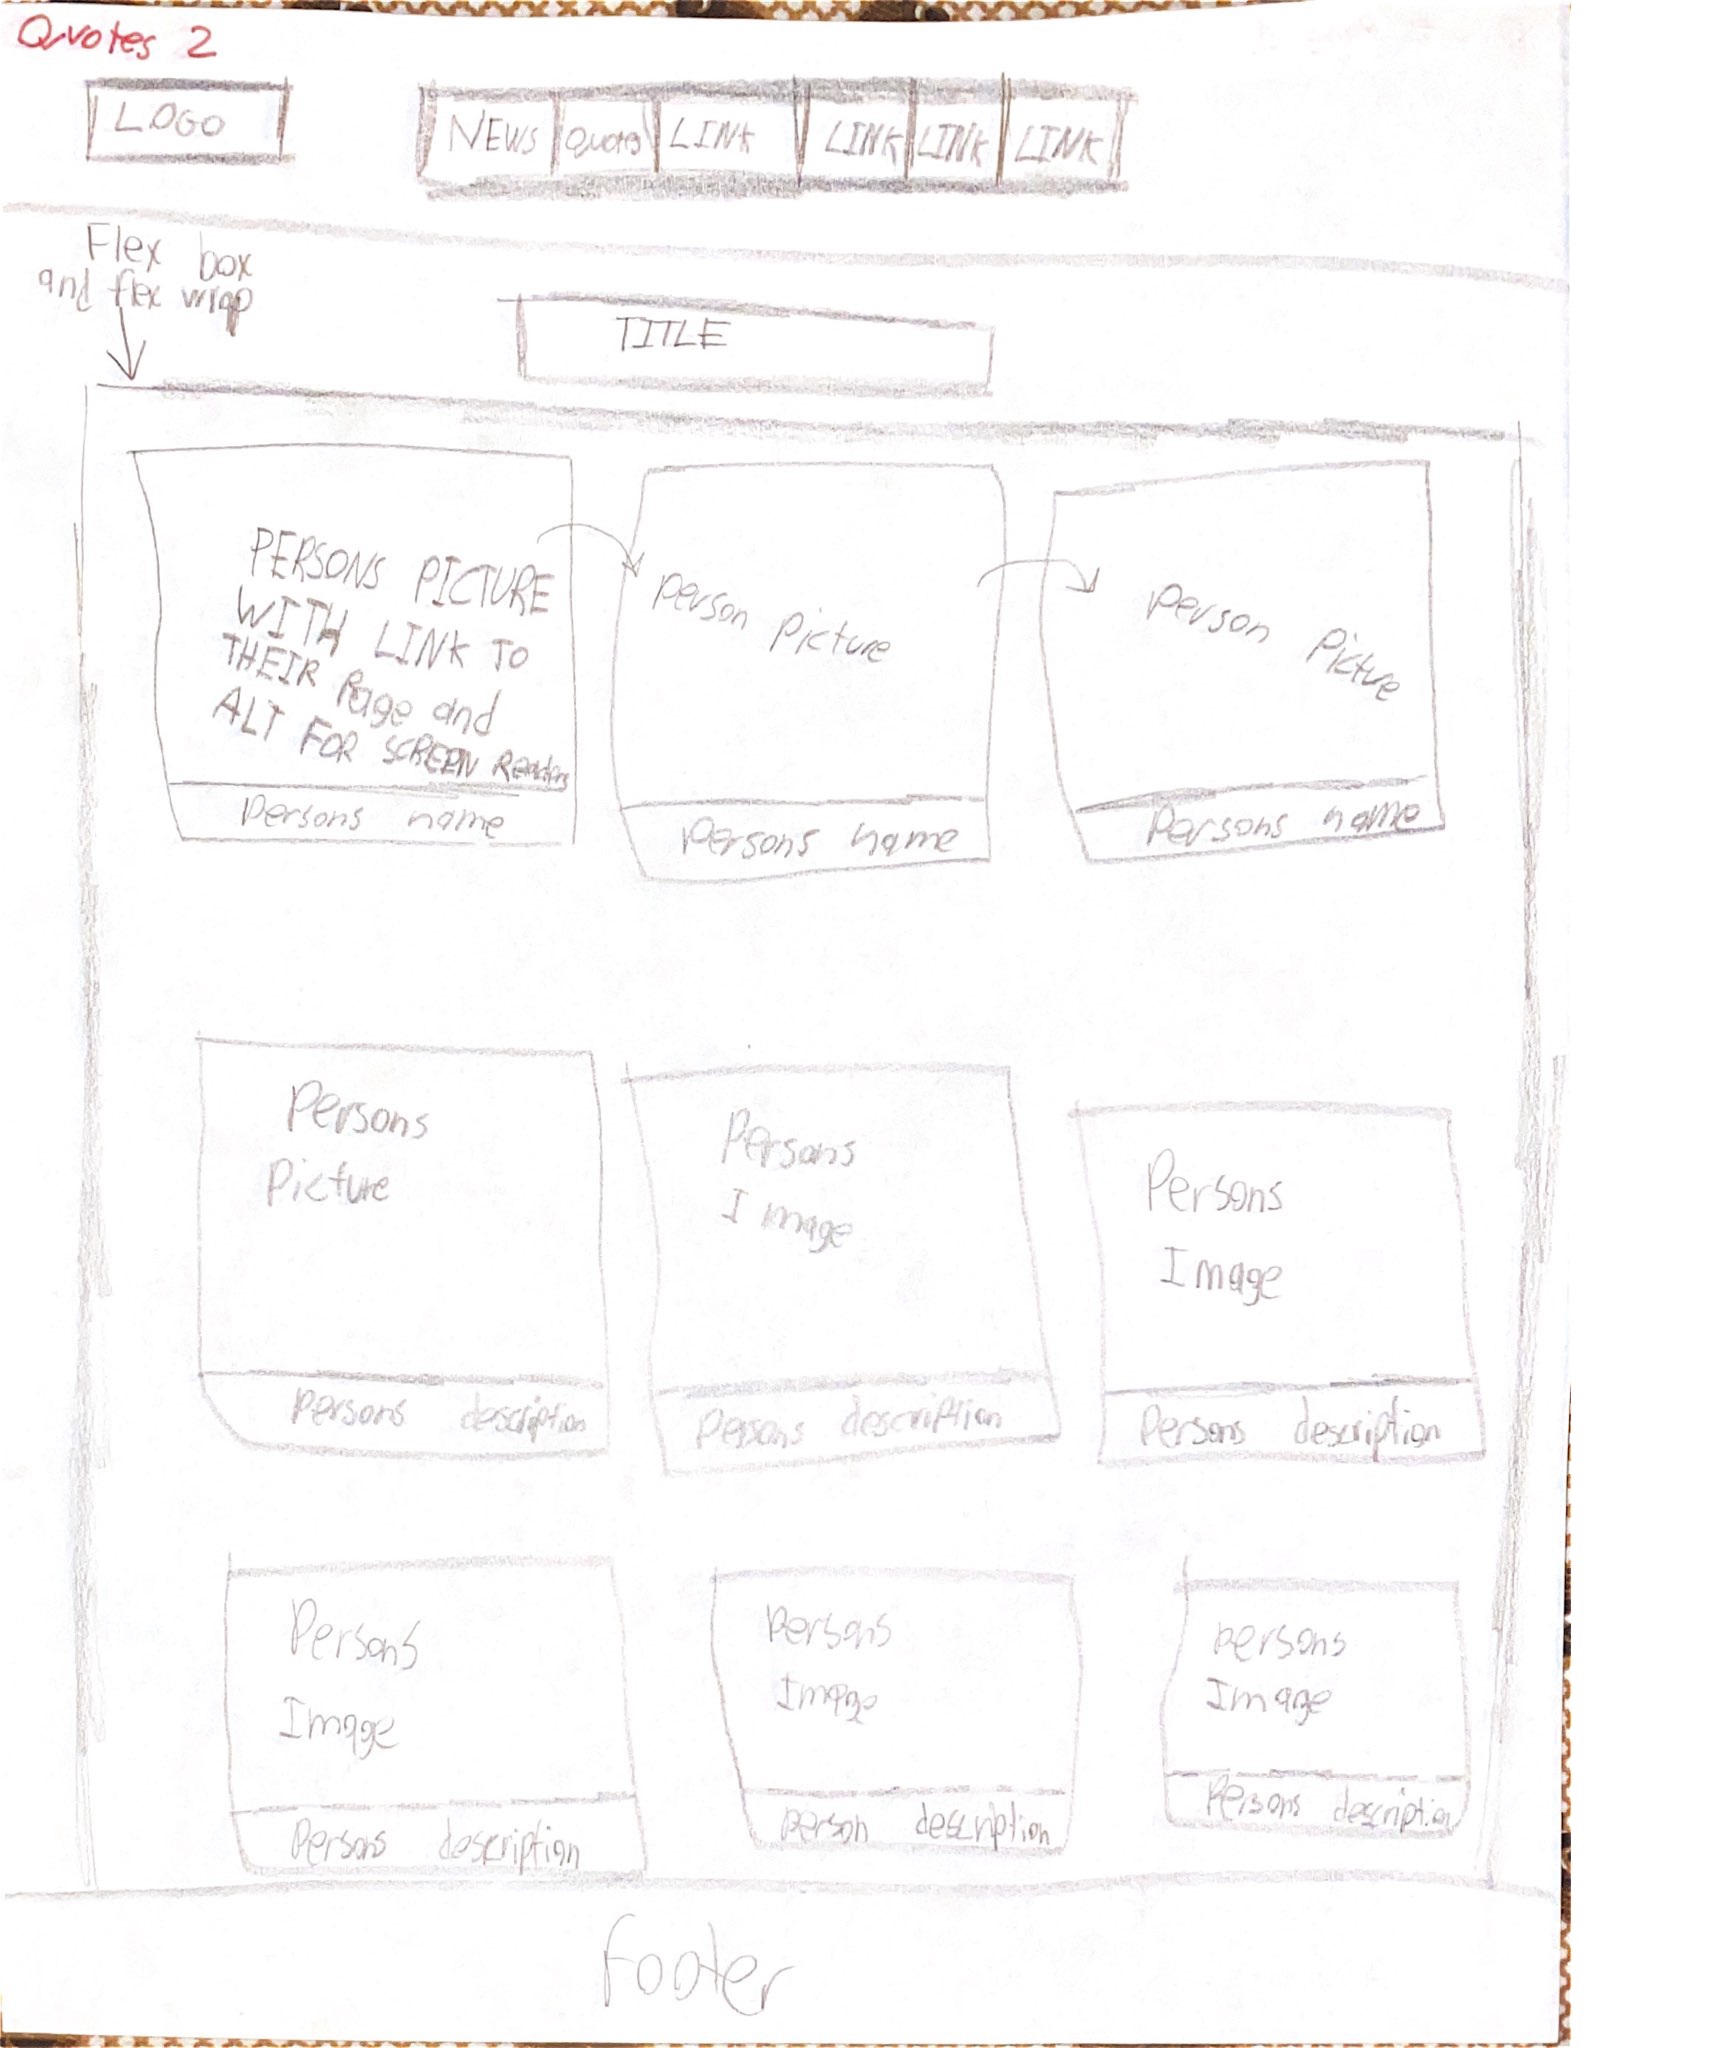 Quotes 2
LOGO
NEWS
Quotes
LINK
LINK
LINK
LINK
Flex box
and flex wrap
TITLE
PERSONS PICTURE
WITH LINK TO
THEIR Page and
ALT FOR SCREEN Readers
Persons name
Person Picture
Persons name
Person Picture
Persons name
Persons
Picture
Persons description
Persons
Image
Persons description
Persons
Image
Persons description
Persons
Image
Persons description
Persons
Image
person description
persons
Image
Persons description
Footer